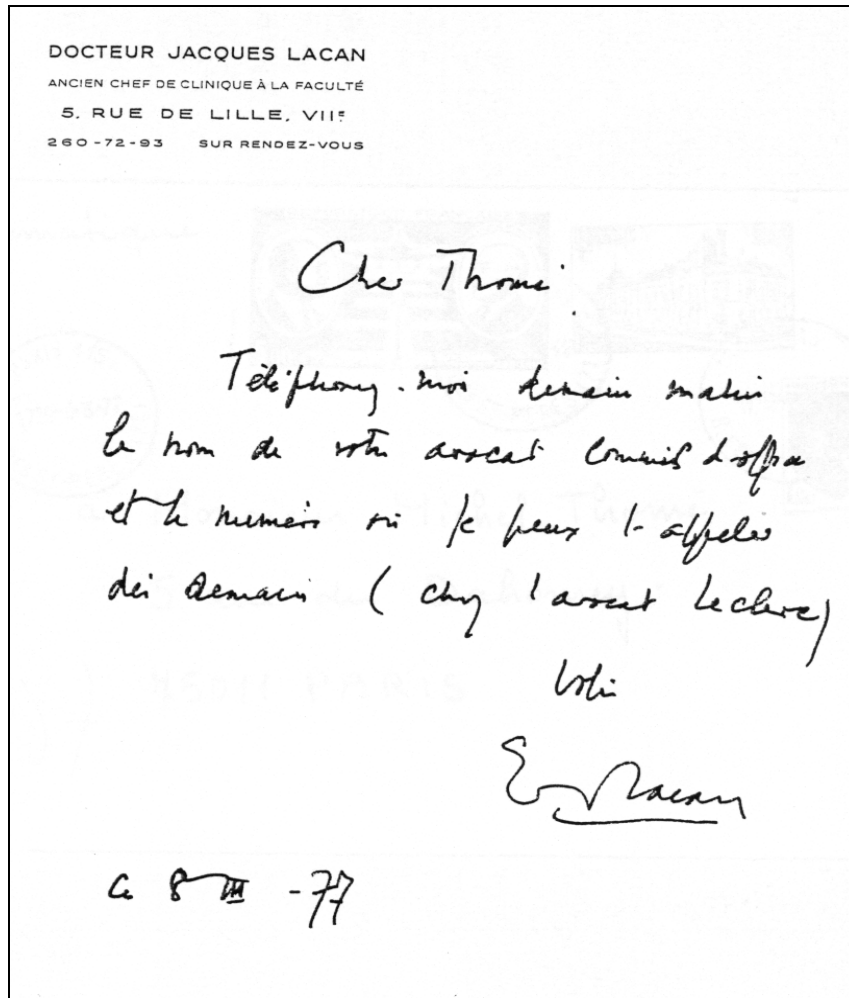 DOCTEUR JACQUES LACAN
ANCIEN CHEF DE CLINIQUE À LA FACULTÉ
5, RUE DE LILLE, VIIE
260-72-93 SUR RENDEZ-VOUS
Cher Thomé.
Téléphonez-moi demain matin
le nom de votre avocat commis d'office
et le numéro où je peux l'appeler
dès demain (chez l'avocat Leclerc)
Votre
Lacan
Ce 8 III -77